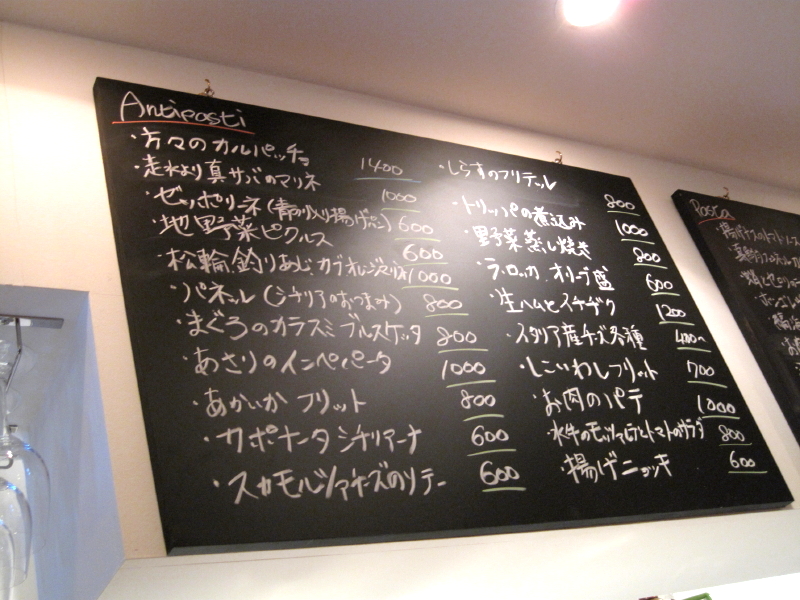 Antipasti
・方々のカルパッチョ 1400
・走水より真サバのマリネ 1000
・ゼッポリーネ(青のり入り揚げピザ) 600
・地野菜ピクルス 600
・松輪釣りあじカブオレンジマリネ 1000
・パネッル(シチリアのおつまみ) 800
・まぐろのカラスミブルスケッタ 800
・あさりのインペパータ 1000
・あかいかフリット 800
・カポナータシチリアーナ 600
・スカモルツァチーズのソテー 600
・しらすのフリテッル 800
・トリッパの煮込み 1000
・野菜蒸し焼き 800
・ラ・ロッカ オリーブ盛 600
・生ハムとイチヂク 1200
・イタリア産チーズ各種 400〜
・しこいわしフリット 700
・お肉のパテ 1000
・水牛のモッツァレラとトマトのサラダ 800
・揚げニョッキ 600
Pasta